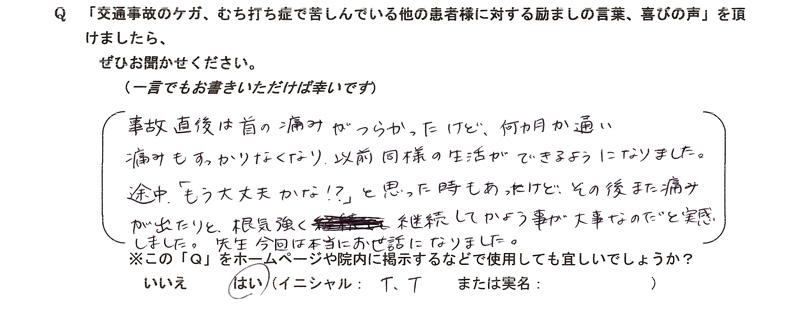 Q 「交通事故のケガ、むち打ち症で苦しんでいる他の患者様に対する励ましの言葉、喜びの声」を頂
けましたら、
ぜひお聞かせください。
(一言でもお書きいただけば幸いです)
事故直後は首の痛みがつらかったけど、何カ月か通い
痛みもすっかりなくなり、以前同様の生活ができるようになりました。
途中、「もう大丈夫かな!?」と思った時もあったけど、その後また痛み
が出たりと、根気強く 継続してかよう事が大事なのだと実感
しました。先生今回は本当にお世話になりました。
※この「Q」をホームページや院内に掲示するなどで使用しても宜しいでしょうか?
いいえ はい (イニシャル: T、T または実名: )